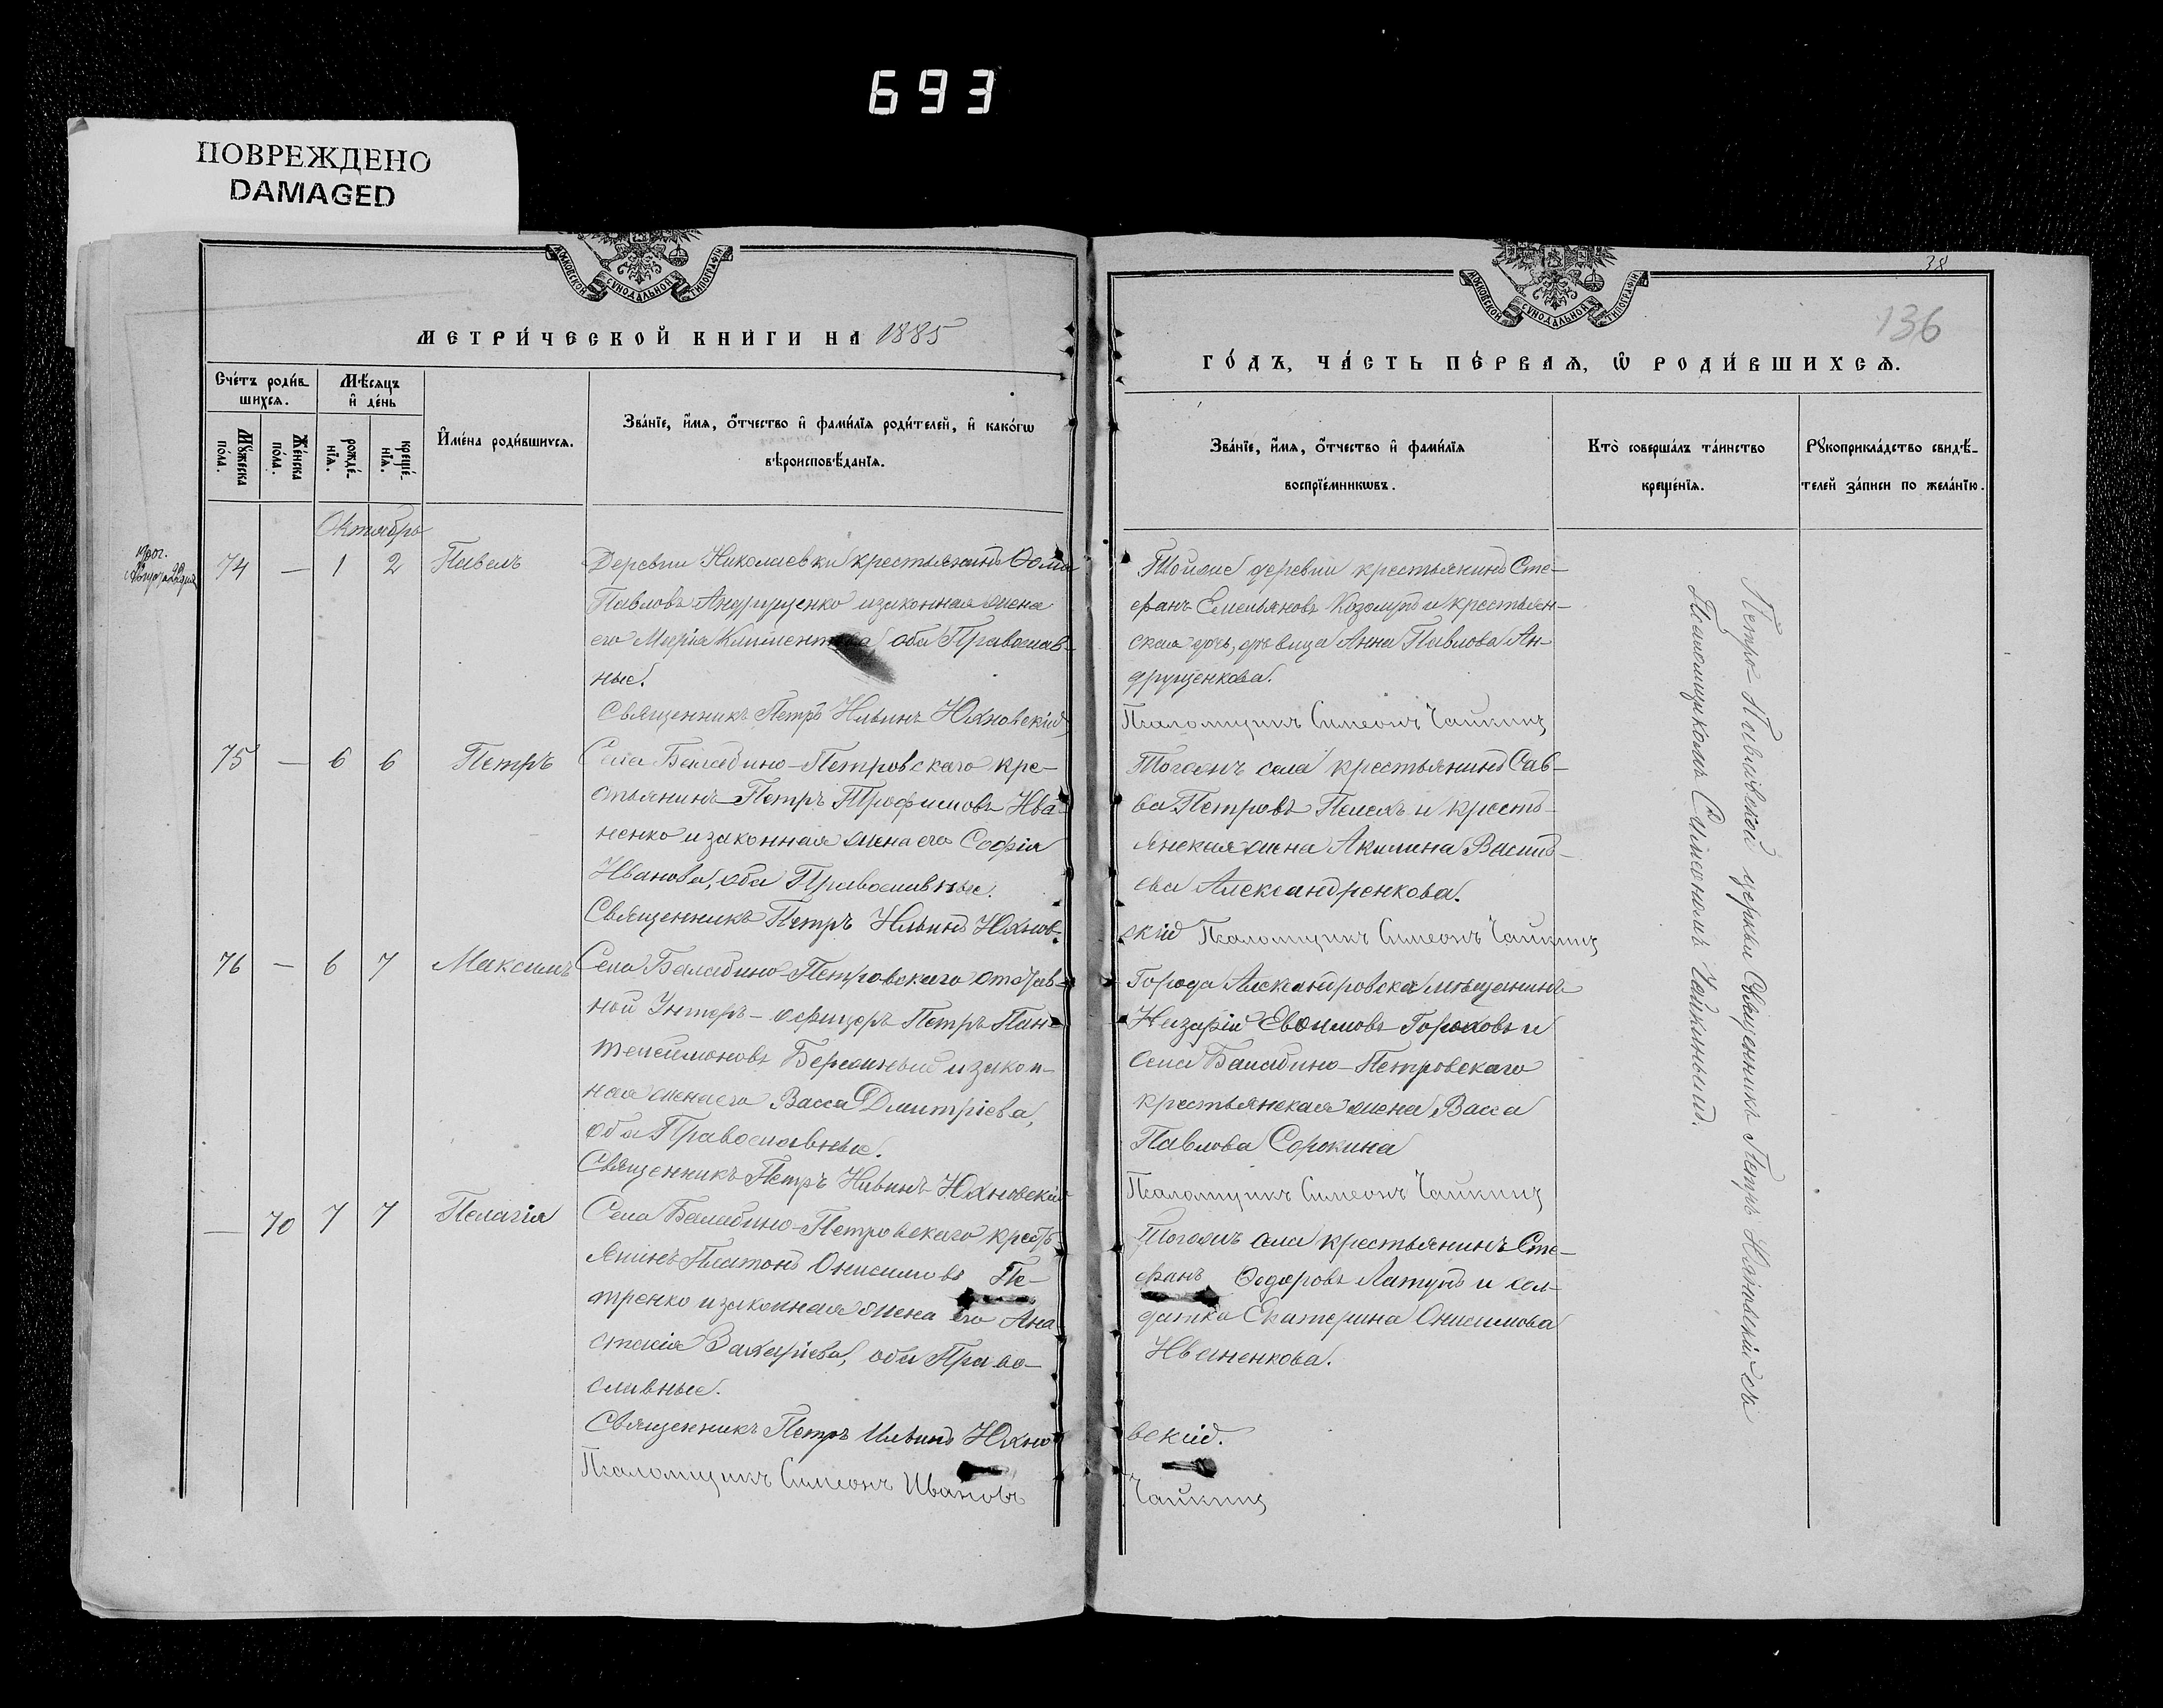 693
ПОВРЕЖДЕНО
DAMAGED
МОСКОВСКОЙ СѴНОДАЛЬНОЙ ТИПОГРАФІИ
МЕТРИ́ЧЕСКОЙ КНИ́ГИ НА 1885
Сче́тъ роди́в-
шихсѧ.
Мꙋ́жеска
по́ла.
Же́нска
по́ла.
Мѣ́сѧцъ
и҆ де́нь
рожде́-
нїѧ.
креще́-
нїѧ.
И҆мена̀ роди́вшихсѧ.
Зва́нїе, и҆́мѧ, ѻ҆́тчество и҆ фами́лїѧ роди́телей, и҆ како́гѡ
вѣроисповѣ́данїѧ.
Октябрь
74 — 1 2 Павелъ
Деревни Николаевки крестьянинъ Ѳома
Павловъ Андрущенко и законная жена
его Марія Климентова оба Православ-
ные.
Священникъ Петръ Ильинъ Юхновскій
75 — 6 6 Петръ
Села Балабино-Петровскаго кре-
стьянинъ Петръ Трофимовъ Ива-
ненко и законная жена его Софія
Иванова, оба Православные.
Священникъ Петръ Ильинъ Юхнов-
76 — 6 7 Максимъ
Села Балабино-Петровскаго отстав-
ной Унтеръ-офицеръ Петръ Пан-
телеймоновъ Бережный и закон-
ная жена его Васса Дмитріева,
оба Православные.
Священникъ Петръ Ильинъ Юхновскій
— 70 7 7 Пелагія
Села Балабино-Петровскаго кресть-
янинъ Платонъ Онисимовъ Пе-
тренко и законная жена его Ана-
стасія Захаріева, оба Право-
славные.
Священникъ Петръ Ильинъ Юхно-
Псаломщикъ Симеонъ Ивановъ
38
136
МОСКОВСКОЙ СѴНОДАЛЬНОЙ ТИПОГРАФІИ
ГО́ДЪ, ЧА́СТЬ ПЕ́РВАѦ, Ѡ҆ РОДИ́ВШИХСѦ.
Зва́нїе, и҆́мѧ, ѻ҆́тчество и҆ фами́лїѧ
воспрїе́мникѡвъ.
Кто̀ соверша́лъ та́инство
креще́нїѧ.
Рꙋкоприкла́дство свидѣ́-
телей за́писи по жела́нїю.
Тойже деревни крестьянинъ Сте-
фанъ Емельяновъ Козолупъ и крестьян-
ская дочь, дѣвица Анна Павлова Ан-
друщенкова.
Псаломщикъ Симеонъ Чайкинъ
Тогожъ села крестьянинъ Сав-
ва Петровъ Пелехъ и кресть-
янская жена Акилина Василь-
ева Александренкова.
скій Псаломщикъ Симеонъ Чайкинъ
Города Александровска мѣщанинъ
Назарій Евѳимовъ Гороховъ и
села Балабино-Петровскаго
крестьянская жена Васса
Павлова Сорокина
Псаломщикъ Симеонъ Чайкинъ
Тогожъ села крестьянинъ Сте-
фанъ Ѳедоровъ Латупъ и сол-
датка Екатерина Онисимова
Иваненкова.
вскій.
Чайкинъ
Петро-Павловской церкви Священникъ Петръ Юхновскій съ
Псаломщикомъ Симеономъ Чайкинымъ.